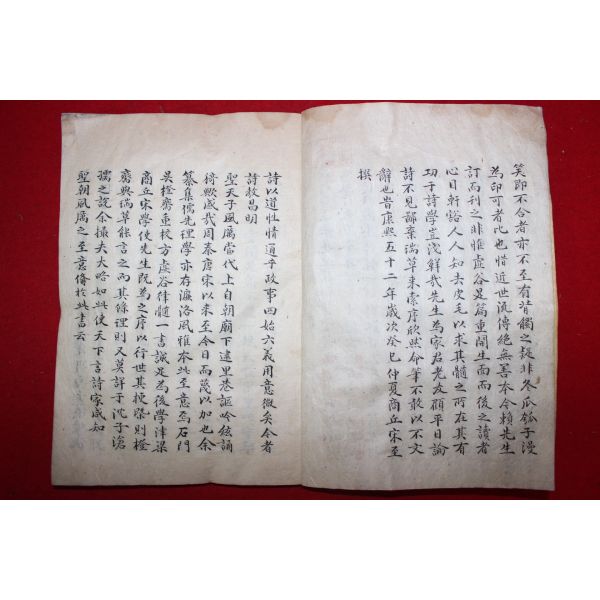 笑即不合者亦不至有背觸之疑非冬瓜瓠子漫
為印可者比也惜近世流傳絶無善本今賴先生
訂而刊之非惟虛谷是篇重開生面而後之讀者
心目軒豁人人知去皮毛以求其髓之所在其有
功于詩學豈淺鮮哉先生為家君老友顧平日論
詩不見鄙棄瑞草來索序欣然命筆不敢以不文
辭也旹康熙五十二年歲次癸巳仲夏商丘宋至
撰
詩以道性情通乎政事四始六義用意微矣今者
詩教昌明
聖天子風厲當代上自朝廟下逮里巷謳吟絃誦
猗歟盛哉周秦唐宋以來至今日而蔑以加也余
纂集儒先理學亦存濂洛風雅本此至意焉石門
吳橙齋重校方虛谷律髓一書誠足為後學津梁
商丘宋學使先生既為之序以行世其梗槩則橙
齋與瑞草能言之而其條理則又莫詳于沈子滄
孺之說余撮夫大略如此使天下言詩家咸知
聖朝風厲之至意備於此書云